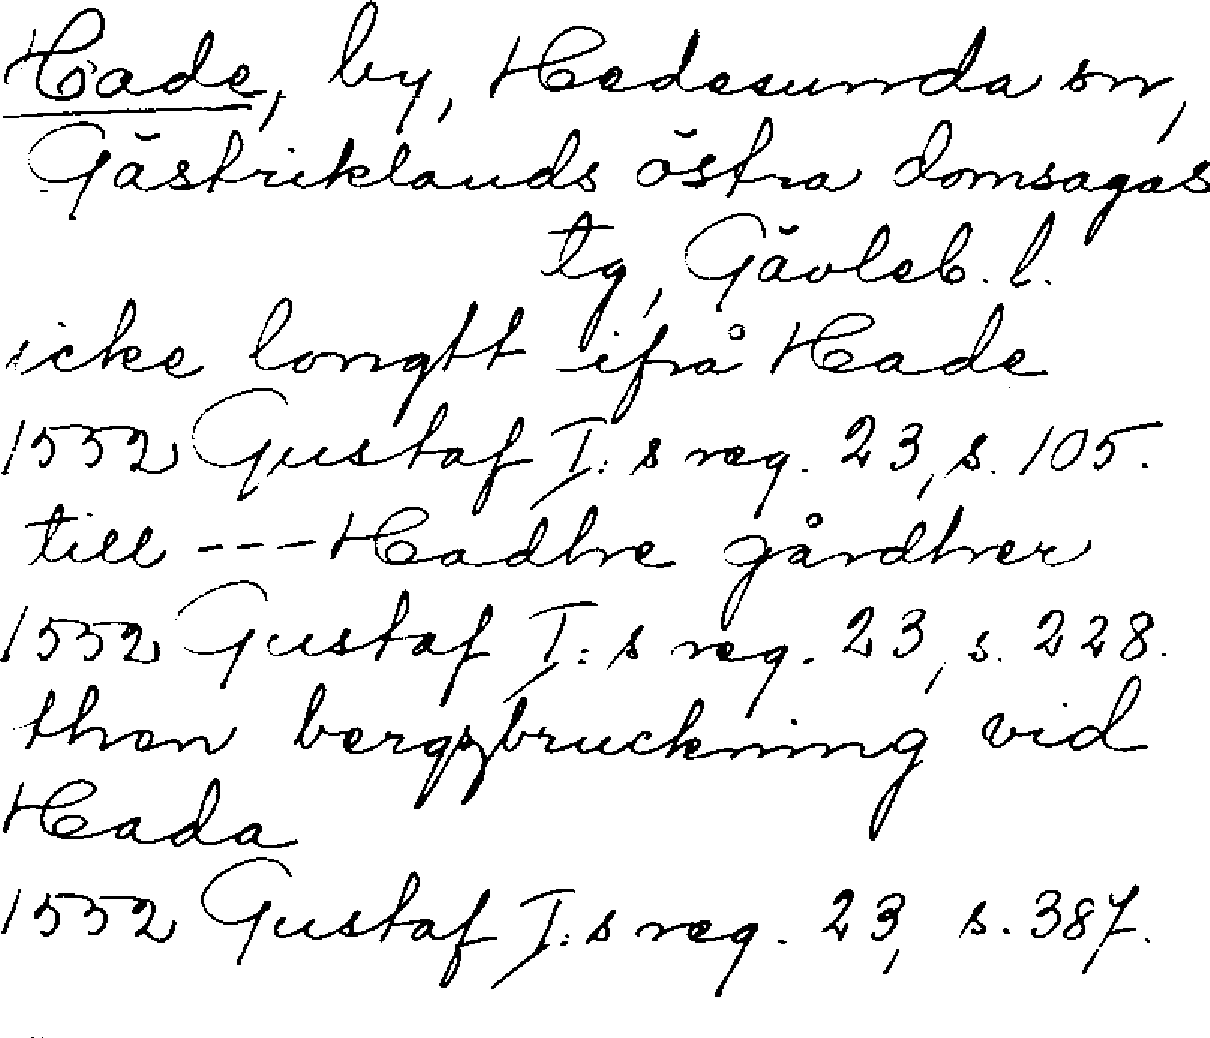 Hade, by, Hedesunda sn,
Gästriklands östra domsagas
tg, Gävleb. l.
icke longtt ifrå Hade
1552 Gustaf I:s reg. 23, s. 105.
till --- Hadhe gårdher
1552 Gustaf I:s reg. 23, s. 228.
then bergzbruckning vid
Hada
1552 Gustaf I:s reg. 23, s. 387.